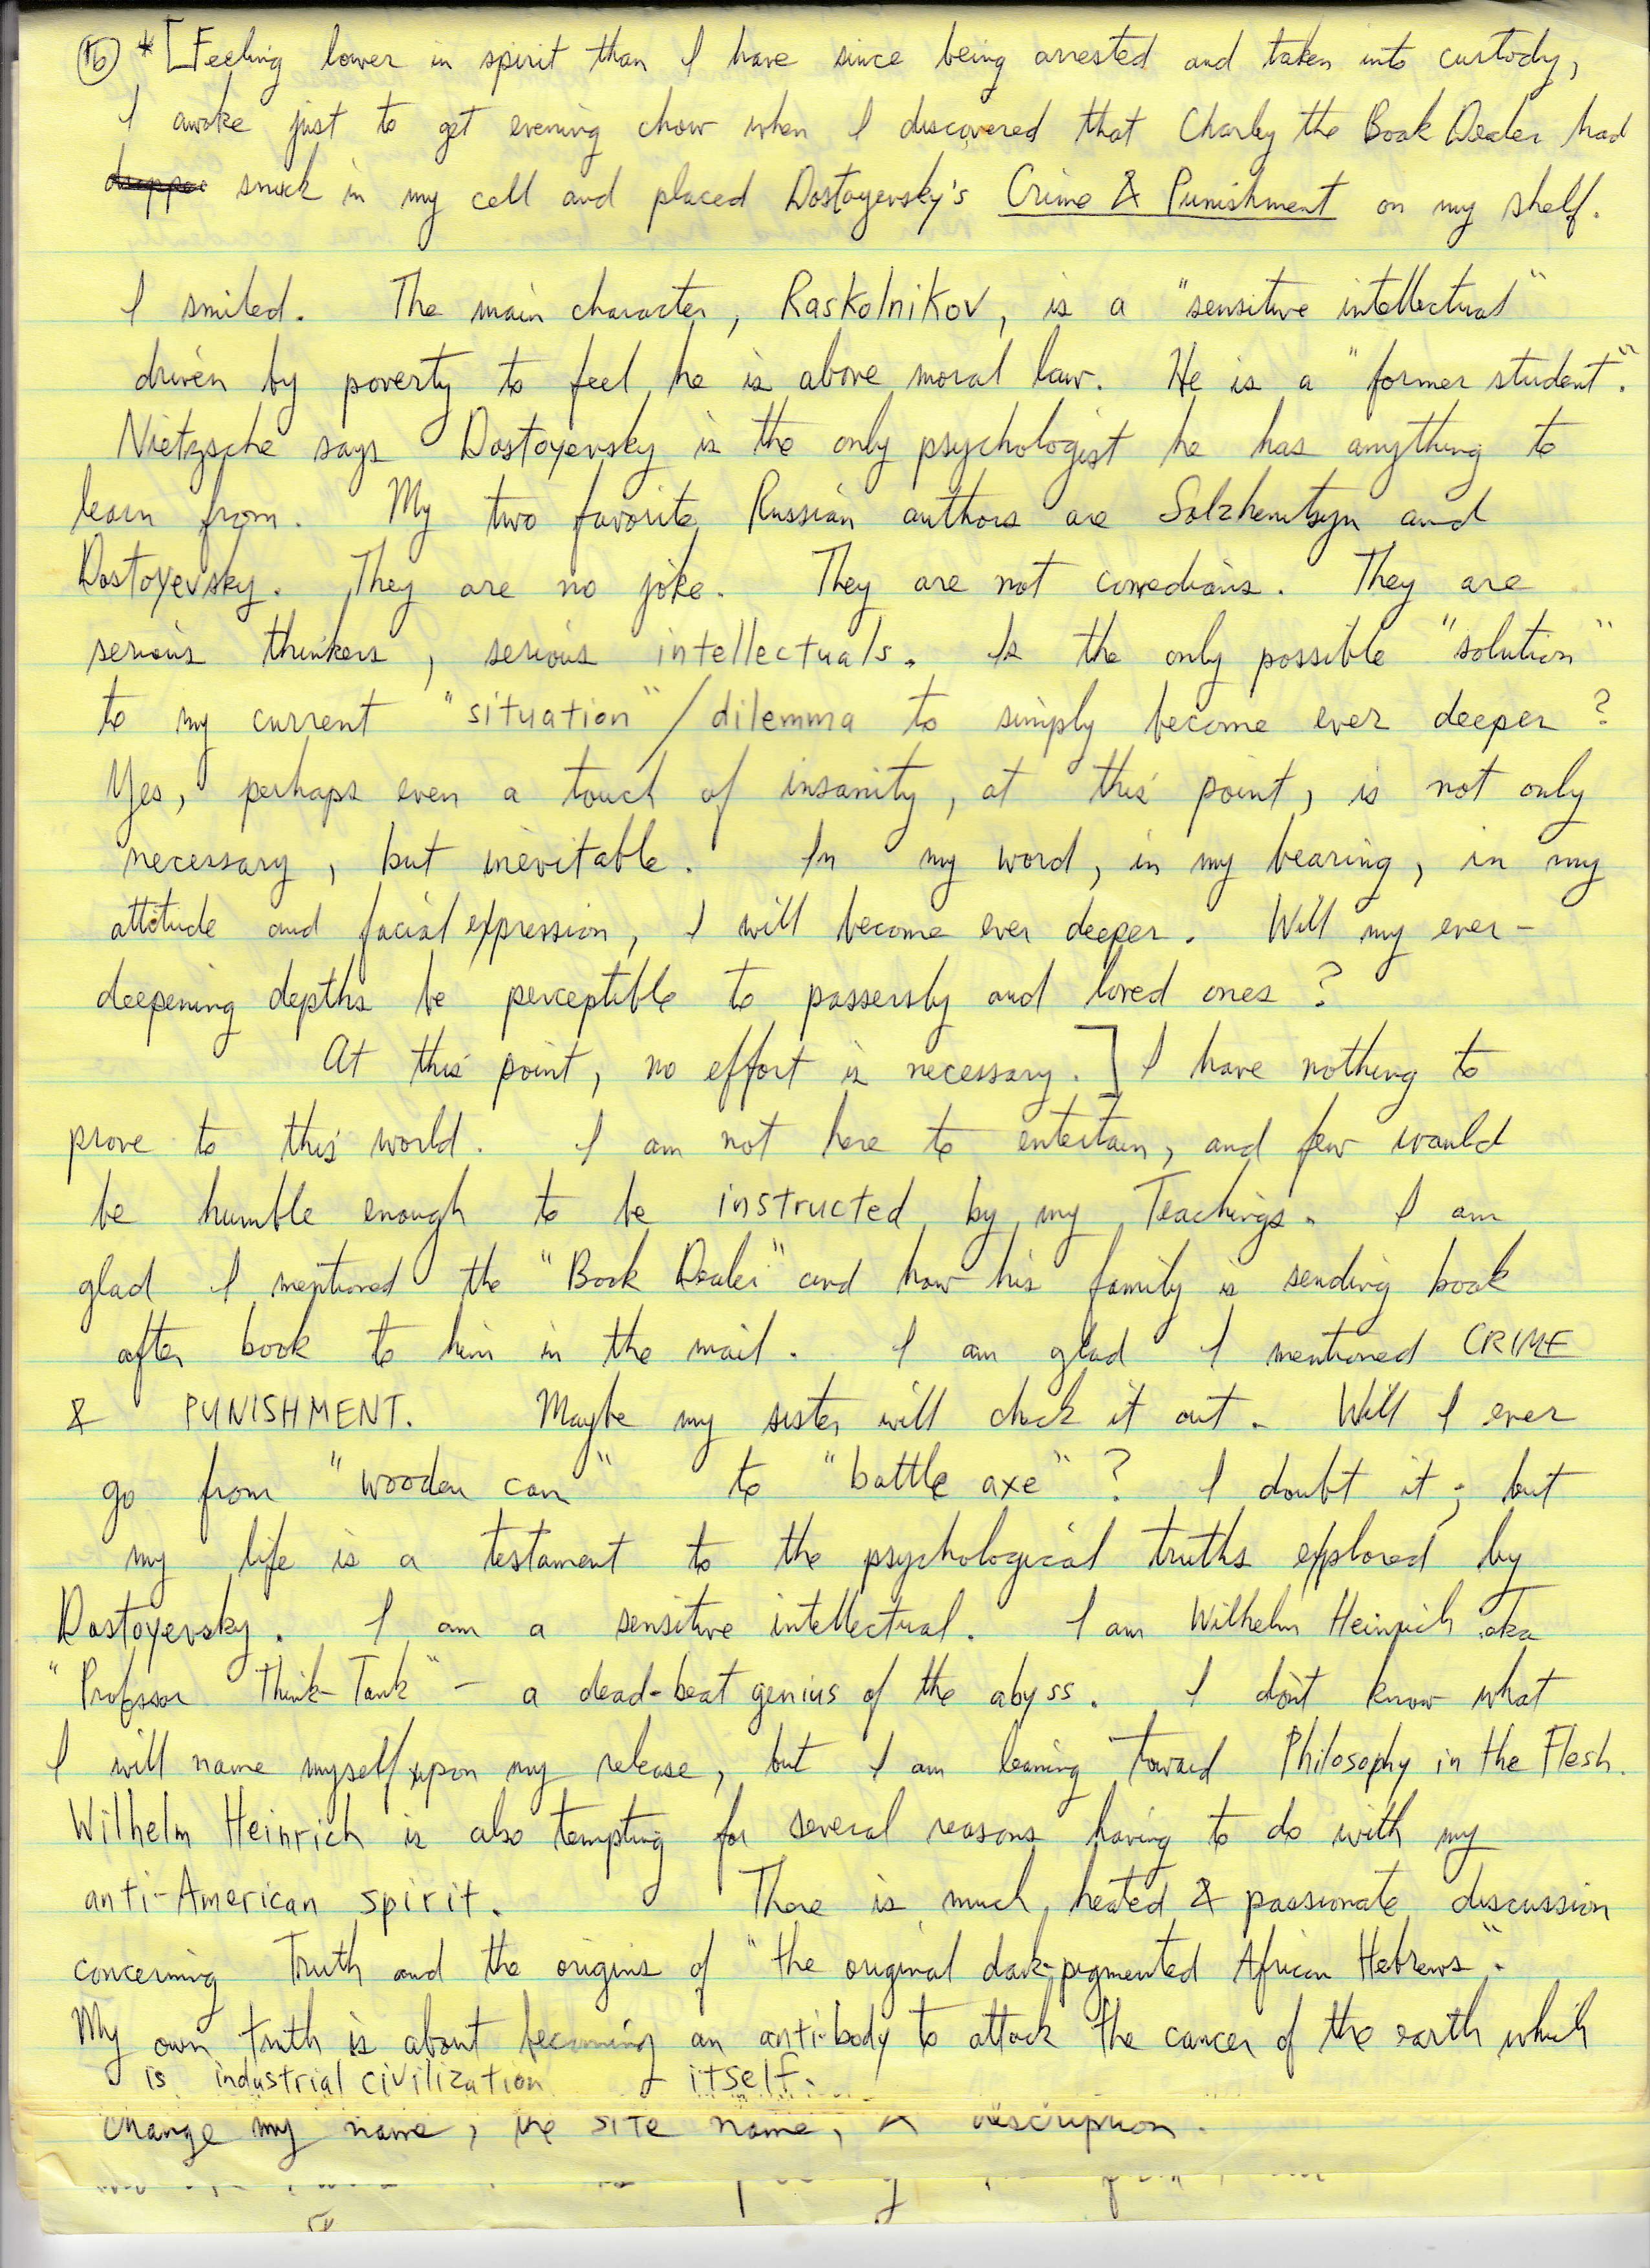 16 * [Feeling lower in spirit than I have since being arrested and taken into custody,
I awoke just to get evening chow when I discovered that Charley the Book Dealer had
snuck in my cell and placed Dostoyevsky's Crime & Punishment on my shelf.
I smiled. The main character, Raskolnikov, is a "sensitive intellectual"
driven by poverty to feel he is above moral law. He is a "former student".
Nietzsche says Dostoyevsky is the only psychologist he has anything to
learn from. My two favorite Russian authors are Solzhenitsyn and
Dostoyevsky. They are no joke. They are not comedians. They are
serious thinkers, serious intellectuals. Is the only possible "solution"
to my current "situation"/dilemma to simply become ever deeper?
Yes, perhaps even a touch of insanity, at this point, is not only
necessary, but inevitable. In my word, in my bearing, in my
attitude and facial expression, I will become ever deeper. Will my ever-
deepening depths be perceptible to passersby and loved ones?
At this point, no effort is necessary.] I have nothing to
prove to this world. I am not here to entertain, and few would
be humble enough to be instructed by my Teachings. I am
glad I mentioned the "Book Dealer" and how his family is sending book
after book to him in the mail. I am glad I mentioned CRIME
& PUNISHMENT. Maybe my sister will check it out. Will I ever
go from "wooden can" to "battle axe"? I doubt it; but
my life is a testament to the psychological truths explored by
Dostoyevsky. I am a sensitive intellectual. I am Wilhelm Heinrich aka
"Professor Think-Tank" - a dead-beat genius of the abyss. I don't know what
I will name myself upon my release, but I am leaning toward Philosophy in the Flesh.
Wilhelm Heinrich is also tempting for several reasons having to do with my
anti-American spirit. There is much heated & passionate discussion
concerning Truth and the origins of "the original dark-pigmented African Hebrews".
My own truth is about becoming an anti-body to attack the cancer of the earth which
is industrial civilization itself.
change my name, the site name, & description.